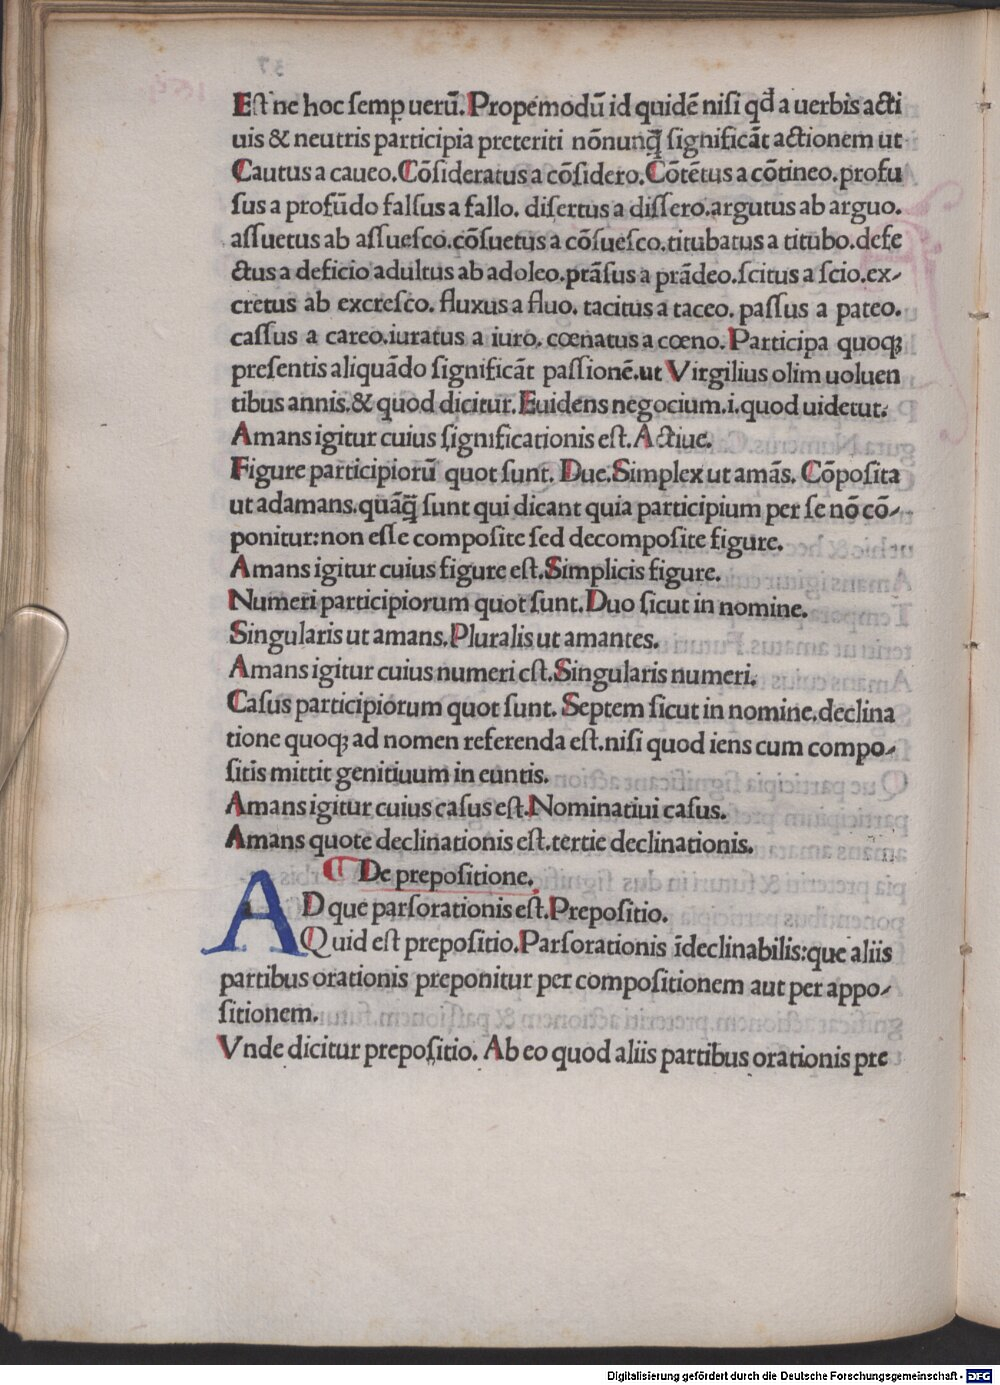 Est ne hoc semꝑ uerū. Propemodū id quidē nisi qđ a uerbis acti
uis & neutris participia preteriti nōnunq̄ significāt actionem ut
Cautus a caueo. Cōsideratus a cōsidero. Cōtētus a cōtineo. profu
sus a profūdo falsus a fallo. disertus a dissero. argutus ab arguo.
assuetus ab assuesco. cōsuetus a cōsuesco. titubatus a titubo. defe
ctus a deficio adultus ab adoleo. prāsus a prādeo. scitus a scio. ex-
cretus ab excresco. fluxus a fluo. tacitus a taceo. passus a pateo.
cassus a careo. iuratus a iuro. cœnatus a cœno. Participa quoqꝫ
presentis aliquādo significāt passionē. ut Virgilius olim uoluen
tibus annis. & quod dicitur. Euidens negocium. i. quod uidetut.
Amans igitur cuius significationis est. Actiue.
Figure participiorū quot sunt. Due. Simplex ut amās. Cōposita
ut adamans. quāq̄ sunt qui dicant quia participium per se nō cō-
ponitur: non esse composite sed decomposite figure.
Amans igitur cuius figure est. Simplicis figure.
Numeri participiorum quot sunt. Duo sicut in nomine.
Singularis ut amans. Pluralis ut amantes.
Amans igitur cuius numeri est. Singularis numeri.
Casus participiorum quot sunt. Septem sicut in nomine. declina
tione quoqꝫ ad nomen referenda est. nisi quod iens cum compo-
sitis mittit genitiuum in euntis.
Amans igitur cuius casus est. Nominatiui casus.
Amans quote declinationis est. tertie declinationis.
De prepositione.
AD que pars orationis est. Prepositio.
Quid est prepositio. Pars orationis īdeclinabilis: que aliis
partibus orationis preponitur per compositionem aut per appo-
sitionem.
Vnde dicitur prepositio. Ab eo quod aliis partibus orationis pre
Digitalisierung gefördert durch die Deutsche Forschungsgemeinschaft - DFG